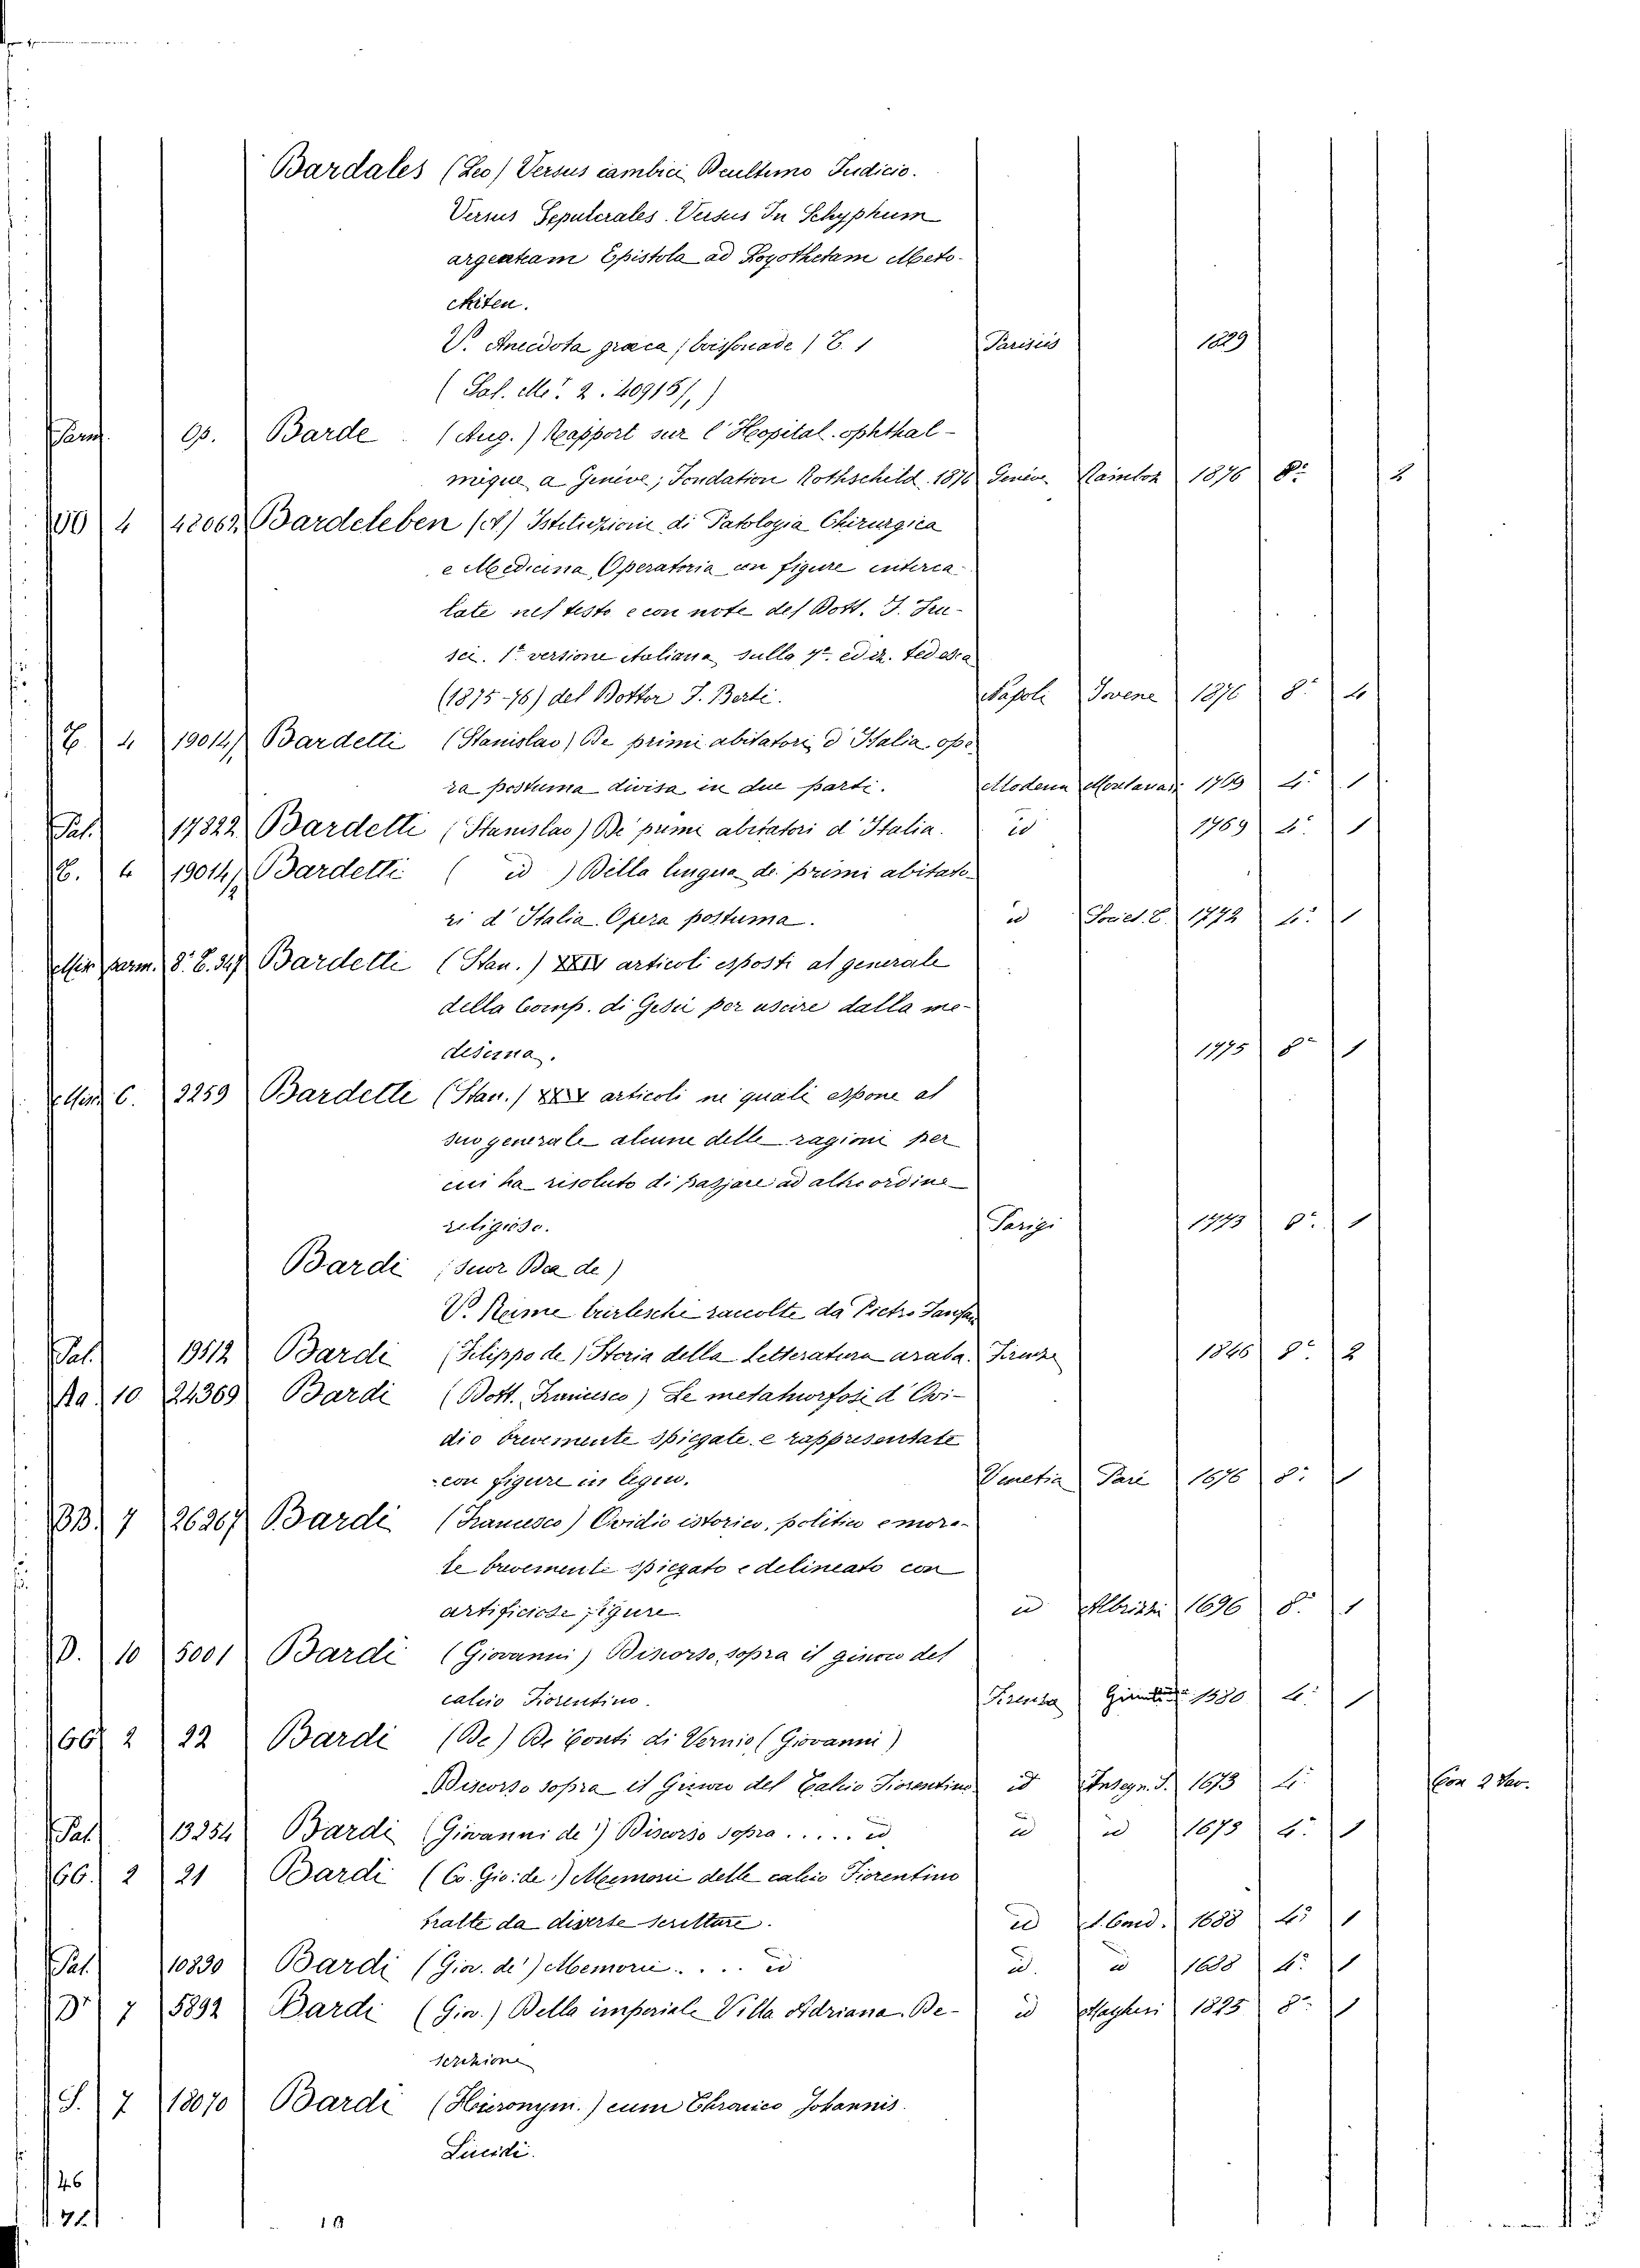 Bardales (Leo) Versus iambici De ultimo Judicio.
Versus Sepulcrales. Versus In Schyphum
argenteam Epistola ad Logothetam Meto-
chiten.
V. Anecdota græca (boissonade) T. 1 Parisiis 1829
(Sal. M. 2. 40915/1)
Parm. 93. Barde (Aug.) Rapport sur l'Hopital ophthal-
mique a Genève; Fondation Rothschild. 1876 Genève 1876 8º 2
4 42062 Bardeleben (A) Istituzioni di Patologia Chirurgica
e Medicina Operatoria con figure interca-
late nel testo e con note del Dott.
sei. 1ª versione italiana sulla 7ª ediz. tedesca
(1875-76) del Dottor J. Berti. Napoli Jovene 1876 8º 4
T. 4 19014/1 Bardetti (Stanislao) De' primi abitatori d'Italia ope-
ra postuma divisa in due parti. Modena Montanari 1769 4º 1
Pal. 17822 Bardetti (Stanislao) De' primi abitatori d'Italia. id 1769 4º 1
T. 4 19014/2 Bardetti ( id ) Della lingua de' primi abitato-
ri d'Italia. Opera postuma. id Societ. T. 1772 4º 1
Min parm. 8º T. 347 Bardetti (Stan.) XXIV articoli esposti al generale
della Comp. di Gesù per uscire dalla me-
desima. 1775 8º 1
Min. C. 2259 Bardetti (Stan.) articoli ne quali espone al
suo generale alcune delle ragioni per
cui ha risoluto di passare ad altro ordine
religioso. Parigi 1773 8º 1
Bardi (suor Bea de)
V. Rime burlesche raccolte da Pietro
Pal. 19512 Bardi (Filippo de) Storia della Letteratura araba. Firenze 1846 8º 2
Aa. 10 24369 Bardi (Dott. Francesco) Le metamorfosi d'Ovi-
dio brevemente spiegate e rappresentate
con figure in legno. Venetia Parè 1676 8º 1
BB. 7 26267 Bardi (Francesco) Ovidio istorico, politico e mora-
le brevemente spiegato e delineato con
artificiose figure id Albrizzi 1696 8º 1
D. 10 5001 Bardi (Giovanni) Discorso sopra il giuoco del
calcio Fiorentino. Firenze Giunti 1580 4º 1
66 2 22 Bardi (De) De' Conti di Vernio (Giovanni)
Discorso sopra il Giuoco del Calcio Fiorentino id Insegn. S. 1673 4º Con 2 tav.
Pal. 13254 Bardi (Giovanni de') Discorso sopra ..... id id id 1673 4º 1
66. 2 21 Bardi (Co. Gio: de') Memorie delle calcio Fiorentino
tratte da diverse scritture. id S. Cond. 1688 4º 1
Pal. 10830 Bardi (Gio. de') Memorie .... id id. id 1688 4º 1
7 5892 Bardi (Gio.) Della imperiale Villa Adriana. De- id Magheri 1825 8º 1
scrizione
S. 7 18070 Bardi (Hieronym.) cum Chronico Johannis
Lucidi.
46
72
19